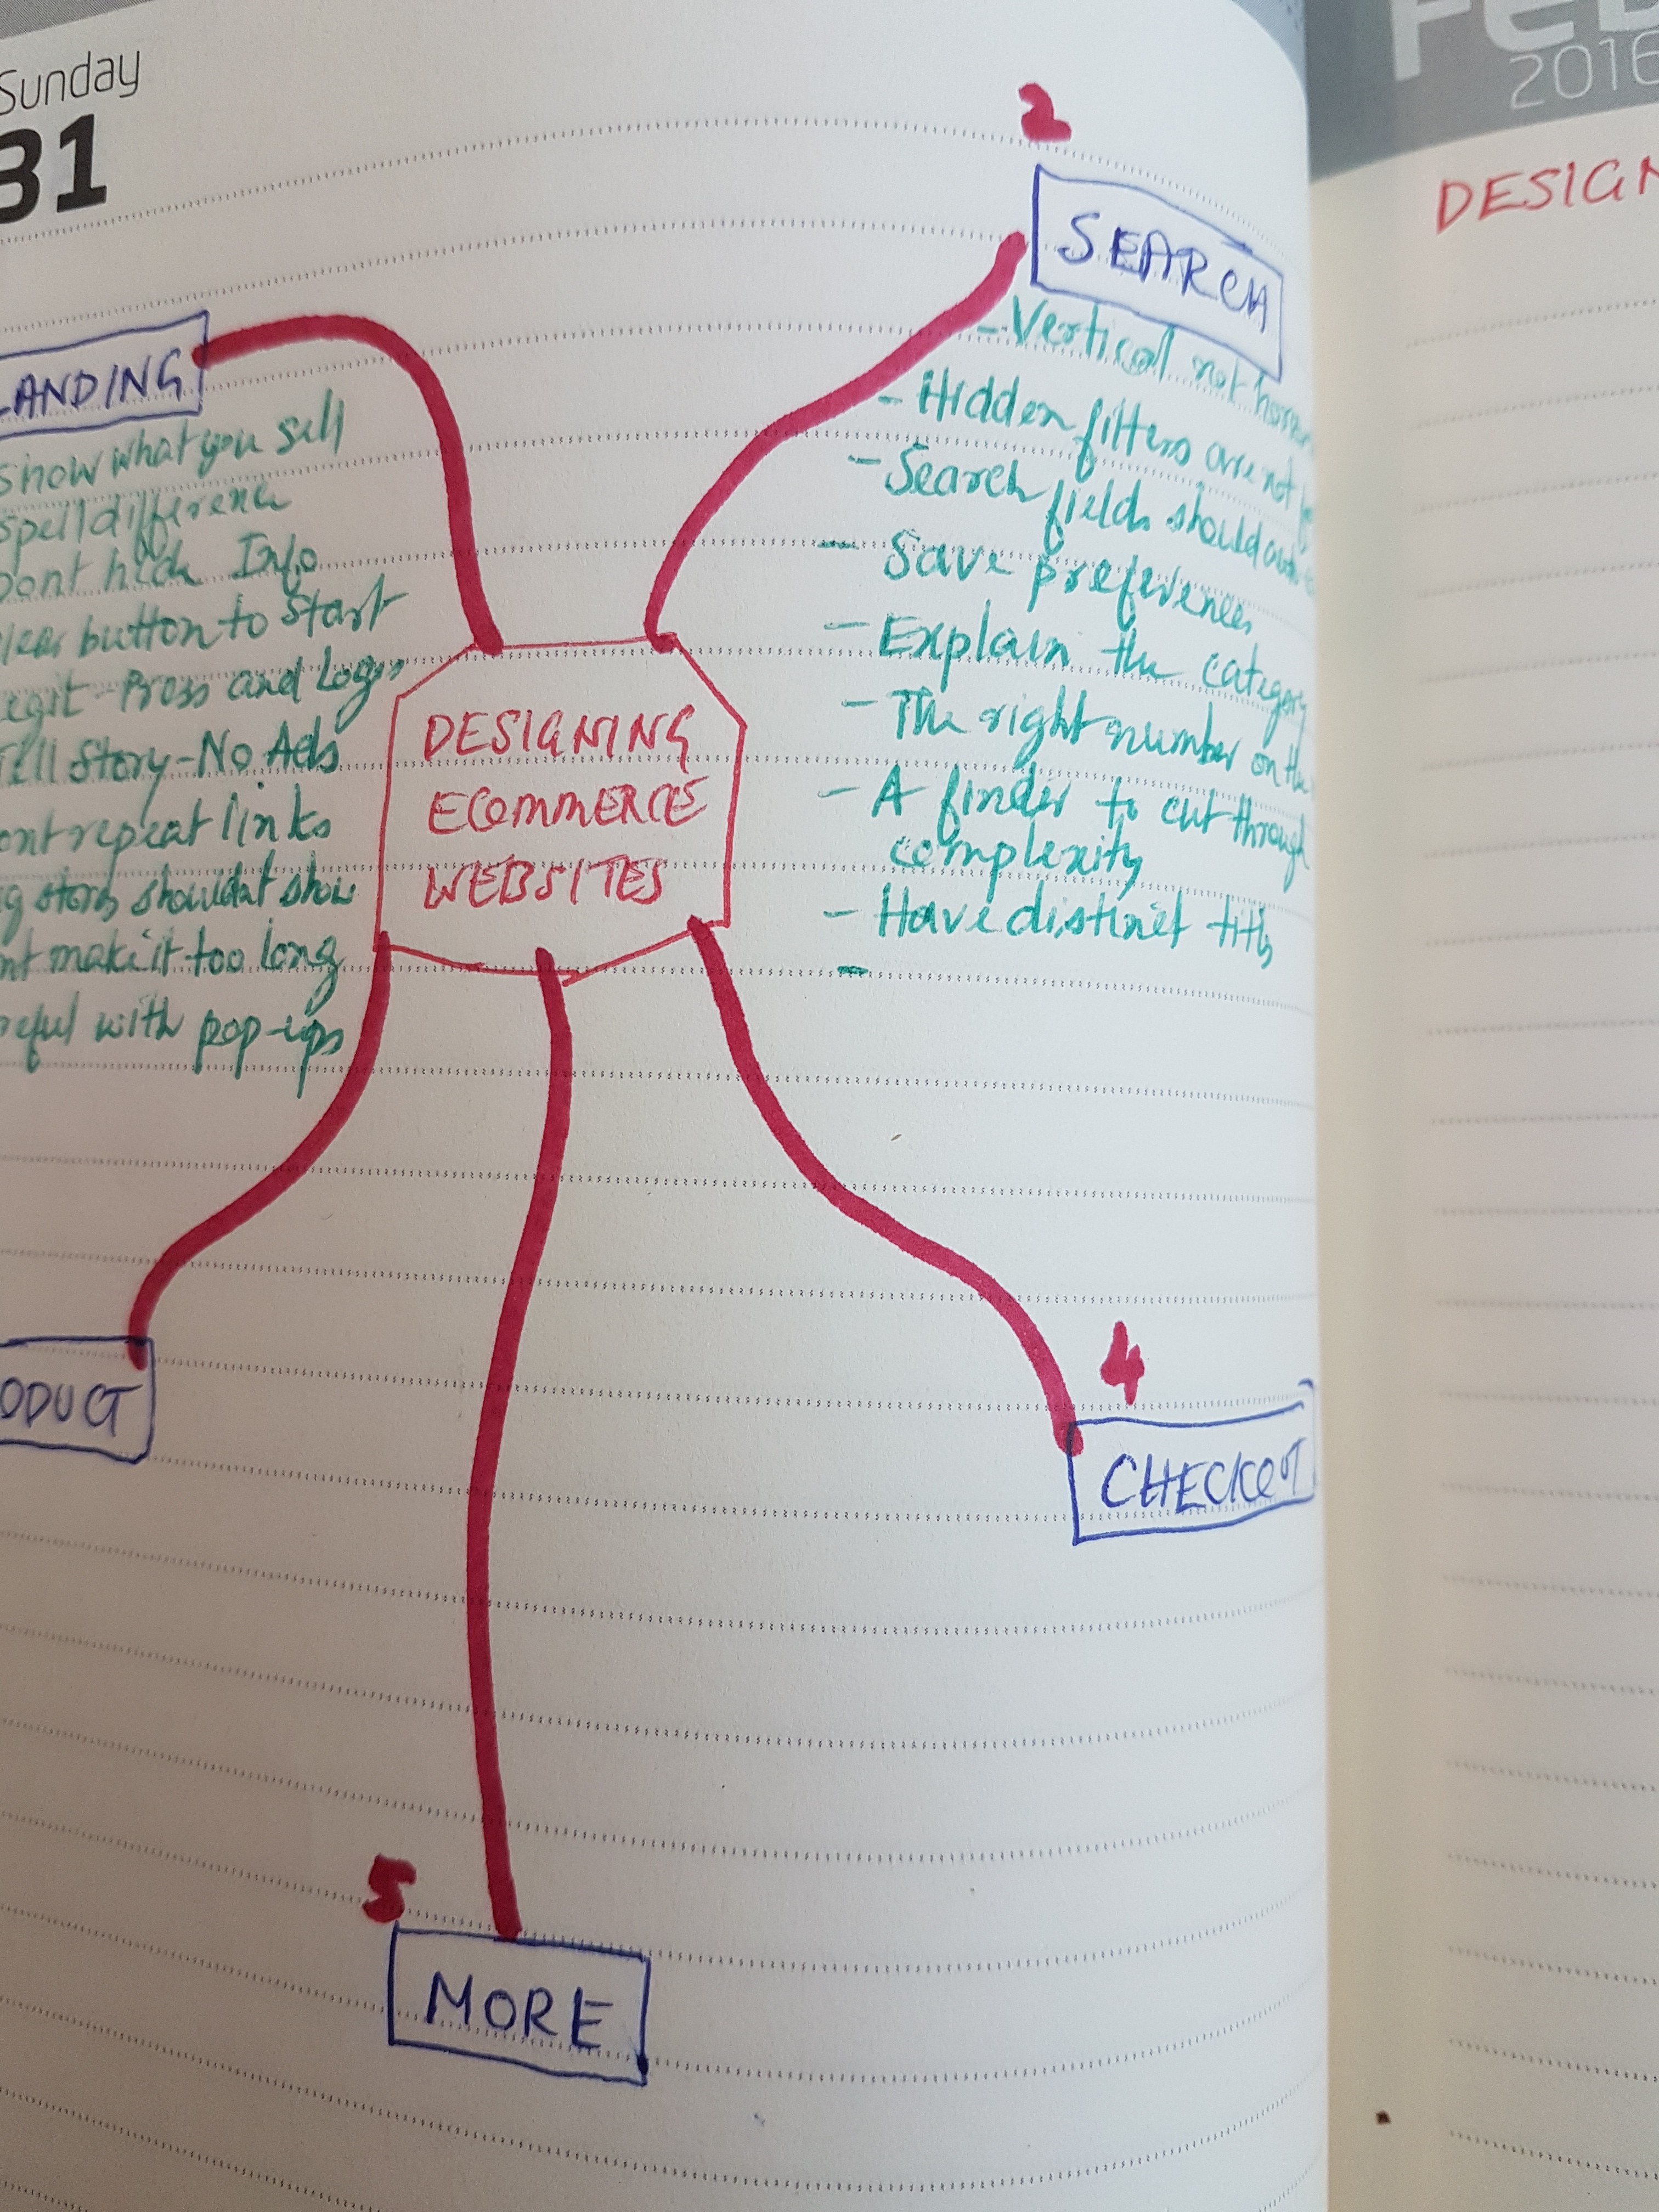 Sunday
31
FEB
2016
DESIGN
2
SEARCH
- Vertical not
- Hidden filters are not
- Search fields should
- Save preferences
- Explain the category
- The right number on the
- A finder to cut through
complexity
- Have distinct titles
-
LANDING
Show what you sell
spell difference
Dont hide Info
clear button to Start
Legit - Press and Logos
Tell Story - No Ads
ont repeat links
g story shouldnt show
nt make it too long
reful with pop-ups
DESIGNING
ECOMMERCE
WEBSITES
ODUCT
4
CHECKOT
5
MORE